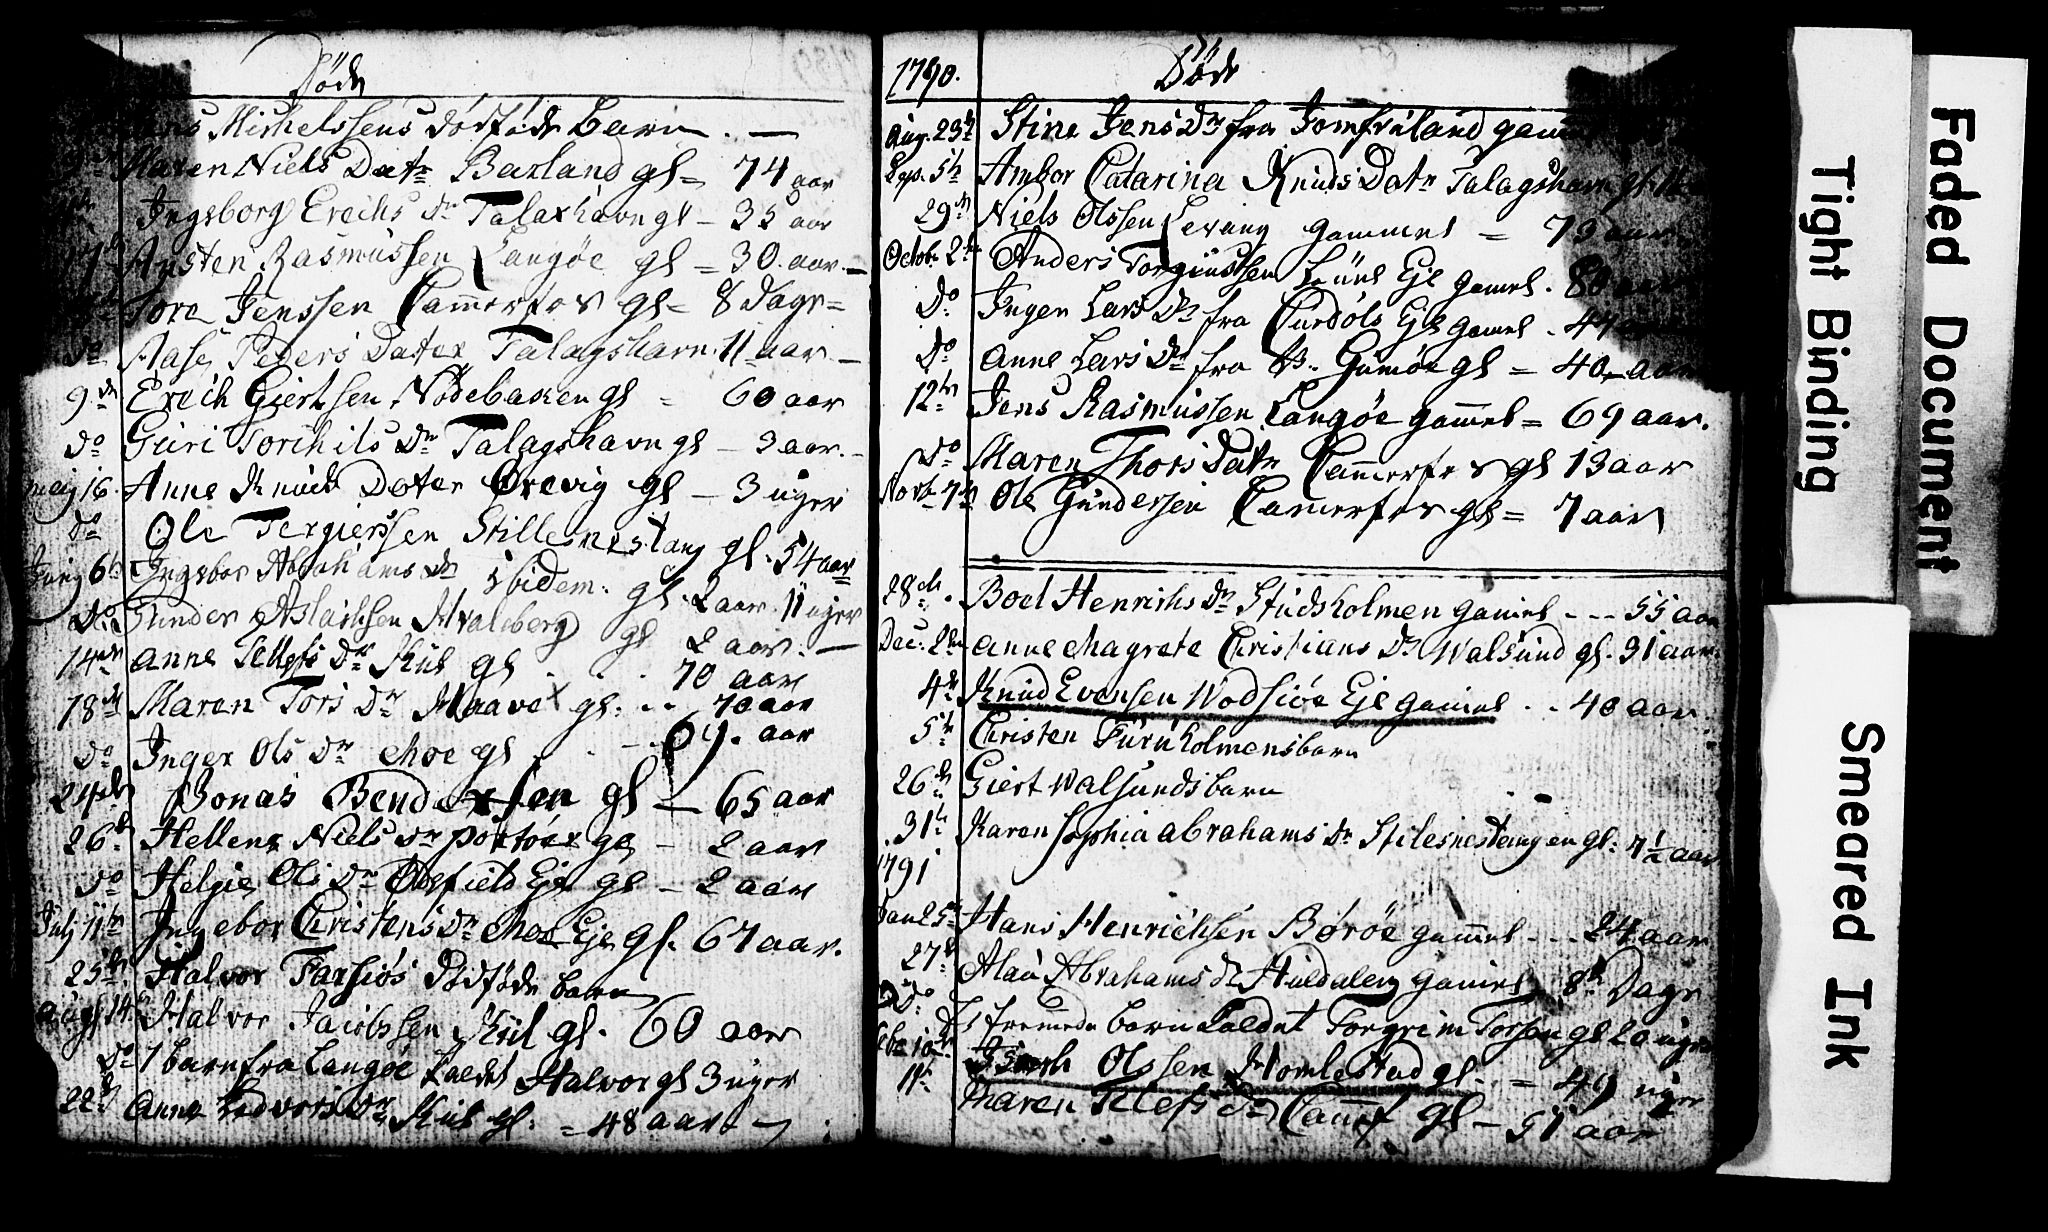 Døde
Michelssens dødføde Barn. —
Maren Niels Datr Barland gl = 74 aar
Ingeborg Erichs Dr Talaxhavn gl - 35 aar
17 Austen Rasmussen Langøe gl = 30. aar. —
Tore Jenssen Camerfos gl = 8 dage =
do Aase Peders Dater Talagshavn. 11 aar —
9de Erech Giertsen Nødebaken gl = 60 aar
do Guri Torchils Dr Talagshavn gl - 3 aar. -
maij 16. Anne Knuds Dater Ørevig gl - 3 uger
do Ole Tergierssen Stillesnestang gl. 54 aar
Junij 6te Ingebor Abrahams dr ibidem. gl. 2 aar. 11 uger
do Gunder Aslachsen Hvalberg gl 2 aar. —
14de anne Tellefs Dr Kiil gl . . . 70 aar
18de Maren Tors Dr Haave gl: .. 70 aar
do Inger Ols Dr Moe gl . . - - 69. aar
24de Jonas Bendixsen gl — 65 aar
26de Hellene Niels dr portøer gl - 2 aar
do Helgie Ols Dr Eje gl - 2 aar
Julj 11te Ingebor Christens Dr Moe Eje gl. 67 aar.
25de Halvor Farsiøs Dødføde barn
augs 14 Halvor Jacobssen Kiil gl. 60 aar
do 1 barn fra Langøe kaldet Halvor gl 3 uger
22de anne Kiil gl. = 48 aar
1790. Døde
Aug. 23de Stine Jens Dr fra Jomfruland gamel
Sep. 5te Ambor Catarina Knuds Datr Talagshavn gl.
29de Niels Olssen Levang gammel = 73 aar
Octob. 2de Anders Torgiussen Eje gamel. 80 aar
Do Inger Lars Dr fra Eje gamel. 47 aar
Do Anne Lars Dr fra Gumøe gl = 40 aar
12te Jens Rasmussen Langøe gammel = 69 aar.
do Maren Thors Datr Camerfos gl 13 aar
Novb. 7de Ole Gundersen Camerfos gl = 7 aar
28de. Boel Henrichs Dr Studsholmen gamel - - - 55 aar
Dec: 2de anne Magrete Christians Dr Walsund gl. 31 aar.
4de Knud Evensen Wodsiøe Eje gamel . . 40 aar.
5te Christen Furuholmens barn
26de Giert Walsunds barn
31te Karen Sophia abrahams dr Stilesnestangen gl. 7 1/2 aar
1791
Jan 25de Hans Henrichsen Børøe gammel - . . 24 aar
27de Abrahams dr Huldalen gamel 8te Dage
Do Et fremede barn kaldet Torgrim Torsen gl 20 uger
Febr 10de Olssen Homlestad gl. = 49 uger
11te Maren Tellefs Dr Camf gl - 51 aar
Faded Document
Tight Binding
Smeared Ink